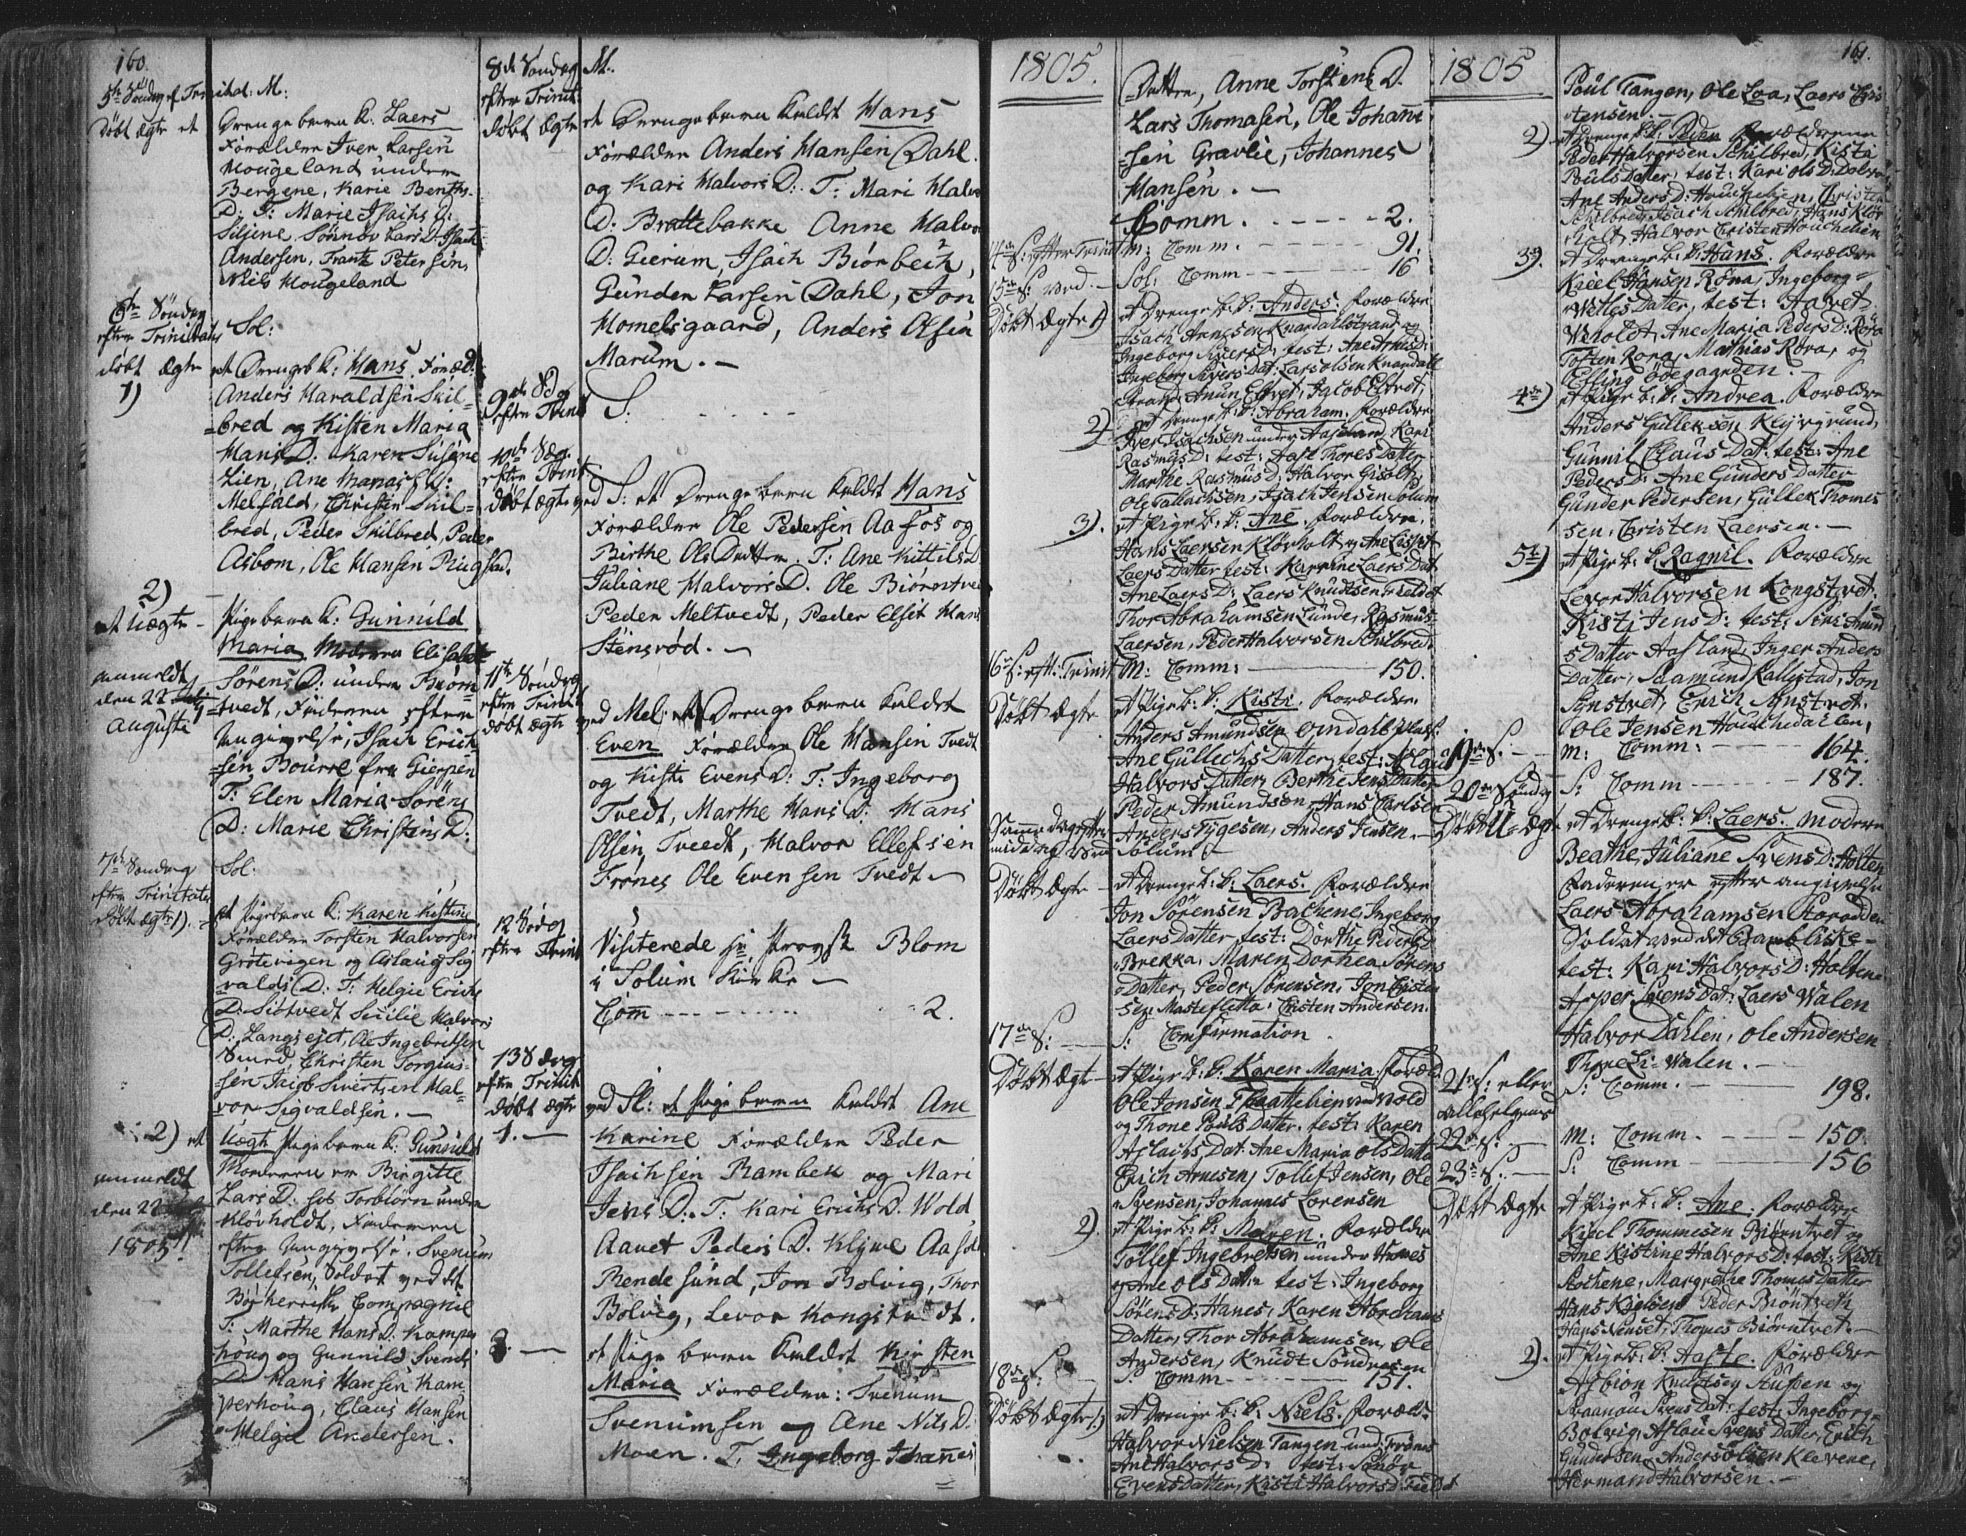 160.
5te Søndag ef. Trinitat: M:
Døbt Ægte et
Drengebarn k. Laers
Forældre Iver Larsen
Hougeland under
Bergene, Karie Benths
D: T: Marie Isachs D:
Siljene, Sønnøv Lars D: Isach
Andersen, Frantz Petersen,
Niels Hougeland
6te Søndag
efter Trinitatis
Sol:
døbt Ægte
1)
et Drengeb k: Hans, Foræld:
Anders Haraldsen Skil-
bred og Kisten Maria
Hans D: Karen Susane
Lien, Ane Hansis D:
Melfald, Christen Skil-
bred, Peder Skilbred, Peder
Asbom, Ole Hansen
2)
et Uægte
Pigebarn k: Gunnild
Maria Moderen Elisabet
anmeldt
den 22
Augusti
Sørens D: under Biørn-
tvedt, Faderen efter
Angivelse, Isach Erich
sen Bourre fra Gierpen
T: Elen Maria Sørens
D: Marie Christens D:
7de Søndag
efter Trinitatis
Sol:
Døbt Ægte 1).
et Pigebarn k: Karen Kistine
Forældre Torsten Halvorsen
Grotevigen og Aslaug Sig
valds D: T: Helgie Erichs
D: Siøtvedt Sicilie Halvors
D: Langejet, Ole Ingebrethsen
Smed, Christen Torgius-
sen Jacob Sivertsen Hal-
vor Sigvaldsen. —
2) et
Uægte Pigebarn k: Gunuld
anmeldt
den 22
1805
Moderen er Birgitte
Lars D: fot Torbiørn under
Kløvholdt, Faderen
efter Angivelse, Svenum
Tollefsen, Soldat ved det
Bøeherretske Compagnie
T: Marthe Hans D: Kamper
houg og Gunnild Svends
D: Hans Hansen Kam-
perhoug, Claus Hansen
Helge Andersen.
8de Søndag
efter Trinit:
Døbt Ægte
M.
et Drengebarn kaldet Hans
Forældre Anders Hansen Dahl.
og Kari Halvors D: T: Mari Halvo
D: Brattebakke Anne Halvo
D: Gierum, Isach Biørbech,
Gunder Larsen Dahl, Jon
Homelsgaard, Anders Olsen
Marum. —
9de Sdag
efter Trinit
S:
10de Søg
efter Trinit
døbt Ægte ved
S: et Drengebarn kaldet Hans
Forældre Ole Pedersen Aafos og
Birthe Ols Datter, T: Ane Kittils D
Juliane Halvors D. Ole Biørntvet
Peder Meltvedt, Peder Elset Hans
Stensrød. —
11te Søndag
efter Trinit
døbt Ægte
ved Mel: et Drengebarn kaldet
Even Forældre Ole Hansen Tvedt
og Kisti Evens D: T: Ingeborg
Tvedt, Marthe Hans D: Hans
Olsen Tveedt, Halvor Ellefsen
Frones Ole Evensen Tvedt —
12 Sdag
efter Trinit
Visiterede Hr Provst Blom
i Solum Kirke —
Com - - - - - 2.
13 Søndag
efter Trinit
døbt Ægte
1. —
ved Sl: et Pige barn kaldet Ane
Karine Forældre Peder
Isachsen Rambek og Mari
Jens D. T: Kari Erichs D. Wold
Aanet Peders D. Klyve Aase
Rendesund, Jon Bolvig, Thor
Bolvig, Levor Kongstvedt.
2. —
et Pige barn kaldet Kirsten
Maria Forældre: Svenum
Svenumsen og Ane Nils D:
Moen. T. Ingeborg Johannes
1805.
Datter, Anne Torstens D.
Lars Thomasen, Ole Johann
sen Gravlie, Johannes
Hansen. —
Comm. - - - - 2.
14de S: efter Trinit
M: Comm. - - - 91.
15de S: ved
Sol: Comm - - - 16
Døbt Ægte 1)
et Drengeb: k: Anders. Forældre
Isach Arnesen Knardalstrand og
Ingeborg Sivers D: test: Ane Arnis D:
Ingeborg Sivers Dat: Lars Olsen Knardal
strand, Amun Elset, Jacob Elset.
2)
et Drengeb: k: Abraham. Forældre
Iver Isachsen under Aaseland, Kari
Rasmus D: test: Aase Thores Datter
Marthe Rasmus D: Halvor Gisolt
Ole Isachsen, Isach Jensen Solum
3).
et Pigeb: k: Ane. Forældre.
Hans Laersen Kløvholt og Ane Lisbet
Laers Datter test: Karrine Laers Dat
Ane Laers D: Laers Knudtsen Fieldet
Thor Abrahamsen Lunde, Rasmus
Laersen, Peder Halvorsen Schilbred.
16de S: eft: Trinit
M: Comm: - - - 150.
Døbt Ægte
et Pige b: k: Kisti. Forældre
Anders Amundsen Omdals plads
Ane Gullechs Datter, test: Aslaug
Halvors Datter, Berthe Jens Datter
Peder Amundsen, Hans Carlsen
Anders Tygesen, Anders Jensen.
Samme Dag efter
middag ved
Solum
Døbt Ægte
et Drenge b: k: Laers. Forældre
Jon Sørensen Bachene, Ingeborg
Laers Datter, test: Dorthe Peders D
Brekka, Maren Dorhea Sørens
Datter, Peder Sørensen, Jon Cristen
sen Mastefletta, Cristen Andersen.
17de S:
S: Comfirmation.
Døbt Ægte
et Pige b: k: Karen Maria. Foræld:
Ole Jonsen Traattelien under Vold
og Thone Pouls Datter. test: Karen
Aslachs Dat: Ane Maria Ols Datter
Erich Arnesen, Tollef Jensen, Ole
Svensen, Johannes Lorensen
2).
et Pige b: k: Maren. Forældre
Tollef Ingebretsen under Hanes
og Ane Ols Datr test: Ingeborg
Sørens D: Hanes, Karen Abrahams
Datter, Thor Abrahamsen, Ole
Andersen, Knudt Sondresen
18de S:
S: Comm - - - 151.
Døbt Ægte 1)
et Drenge b: k: Niels. Foræld:
Halvor Nielsen Tangen und: Frønes
Ane Halvors D: test: Sønøv
Evens Datter, Kisti Halvors D: Field
1805
161.
Poul Tangen, Ole Loa, Laers Cris
tensen. —
2)
et Drenge b: k: Peder Forældrene
Peder Halvorsen Schilbred, Kisti
Pouls Datter, test: Kari Ols D: Dolva
Ane Anders D: Houchelien, Cristen
Schilbred, Isach Schilbred, Hans Kløv
holt, Halvor Cristen Houchelien
3).
et Drenge b: k: Hans. Forældre
Kieel Hansen Røra, Ingeborg
Vetles Datter, test: Halvet
Weholdt, Ane Maria Peders D: Røra
Tosten Rora, Mathias Rora, og
Elling Ødegaarden.
4de)
et Pige b: k: Andrea. Forældre
Anders Gulleksen Klyvgrund,
Gunnil Claus Dat. test: Ane
Peders D: Ane Gunders Datter
Gunder Pedersen, Gullek Thomes
sen, Christen Laersen. —
5te)
et Pige b: k: Ragnil. Forældre
Levor Halvorsen Kongstvet.
Kisti Jens D: test: Siri Amund
s Datter Aasland, Inger Anders
Datter, Saamund Kallystad, Jon
Anstvet, Erich Anstvet.
Ole Jensen Houchedalen,
19de S. —
M: Comm: - - - 164.
20de Søndag
S: Comm - - - 187.
Døbt U=Ægt
et Drenge b: k: Laers. Modere
Beathe Juliane Svens D: Holten
Faderen er efter angivelse
Laers Abrahamsen Foradden
Soldat ved det Bambleske
test: Kari Halvors D: Holtene
Asper Svens Dat: Laers Walen
Halvor Dahlen, Ole Andersen
Walen. —
21de S: eller
Allehelgens
S: Comm. - - - 198.
22de S: —
M: Comm. - - - 150.
23de S: —
S: Comm - - - 156
Døbt Ægte
et Pige b: k: Ane. Forældre
Kieel Thommesen Biørntvet og
Ane Kistine Halvors D: test: Kisti
Aochene, Margrethe Thomes Datter
Hans Kielsen Peder Biøntveth
Hans Nenset, Thomes Biørntvet —
2).
et Pige b: k: Aaste. Forældre
Asbion Knudtsen Stussen og
Svens Dat: test: Ingeborg
Bolvig, Aslau Svens Datter, Erich
Gundersen, Anders Olsen Klevene,
Hermand Halvorsen. —